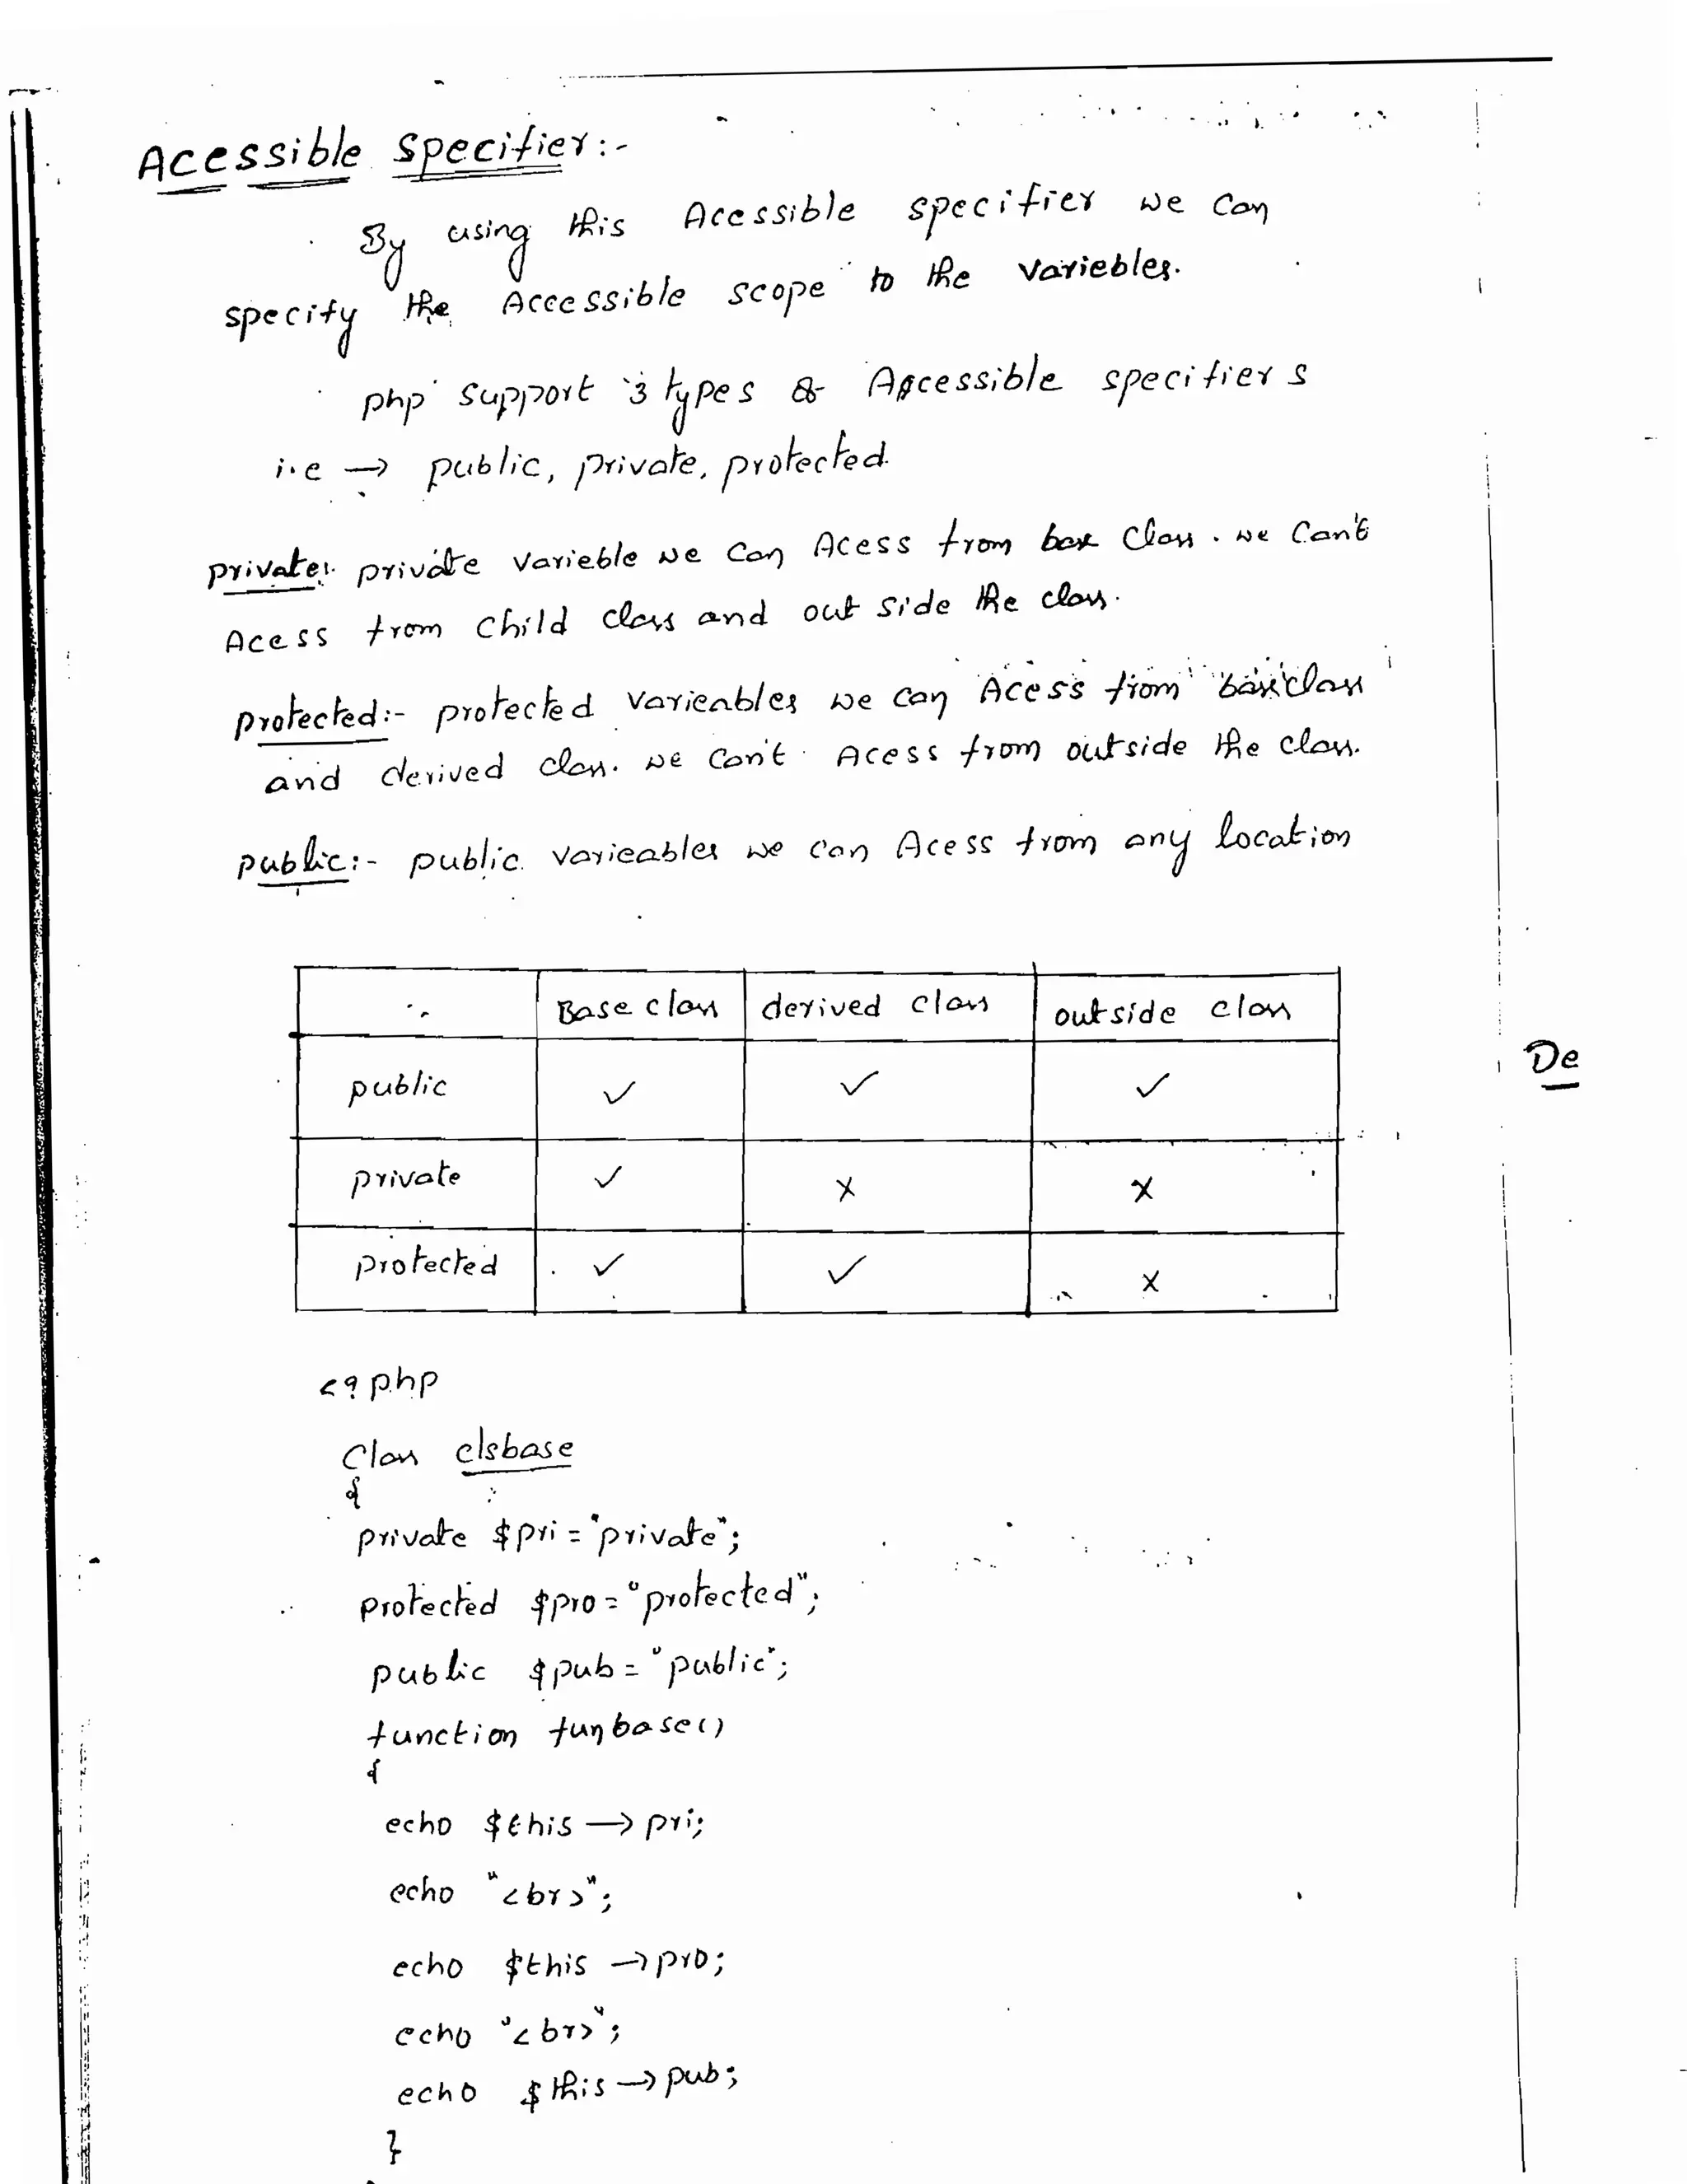 Acessible specifier:-
By using this Acessible specifier we can
specify the Accessible scope to the variebles.
php support 3 types of Accessible specifiers
i.e → public, private, protected.
private:- private varieble we can Acess from base class. we can't
Acess from child class and out side the class.
protected:- protected varieables we can Acess from base class
and derived class. we can't Acess from outside the class.
public:- public varieables we can Acess from any location
Base class derived class outside class
public ✓ ✓ ✓
private ✓ x x
protected ✓ ✓ x
De
<?php
Class clsbase
{
private $pri = "private";
protected $pro = "protected";
public $pub = "public";
function funbase()
{
echo $this → pri;
echo "<br>";
echo $this → pro;
echo "<br>";
echo $this → pub;
}